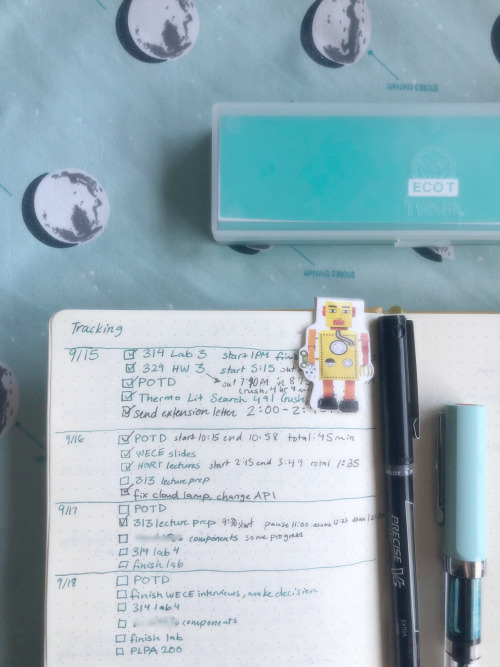 WANING GIBBOUS
ECOT
WANING GIBBOUS
Tracking
9/15
314 Lab 3 start 1PM
329 HW 3 start 5:15
POTD
Thermo Lit Search 491
send extension letter 2:00-2:
9/16
POTD start 10:15 end 10:58 total: 45 min
WECE slides
HORT lectures start 2:15 end 3:49 total 1:35
313 lecture prep
fix cloud lamp, change API
9/17
POTD
313 lecture prep 9:30 start pause 11:00
components some progress
314 lab 4
finish lab
9/18
POTD
finish WECE interviews, make decision
314 lab 4
components
finish lab
PLPA 200
PILOT
PRECISE V5
EXTRA